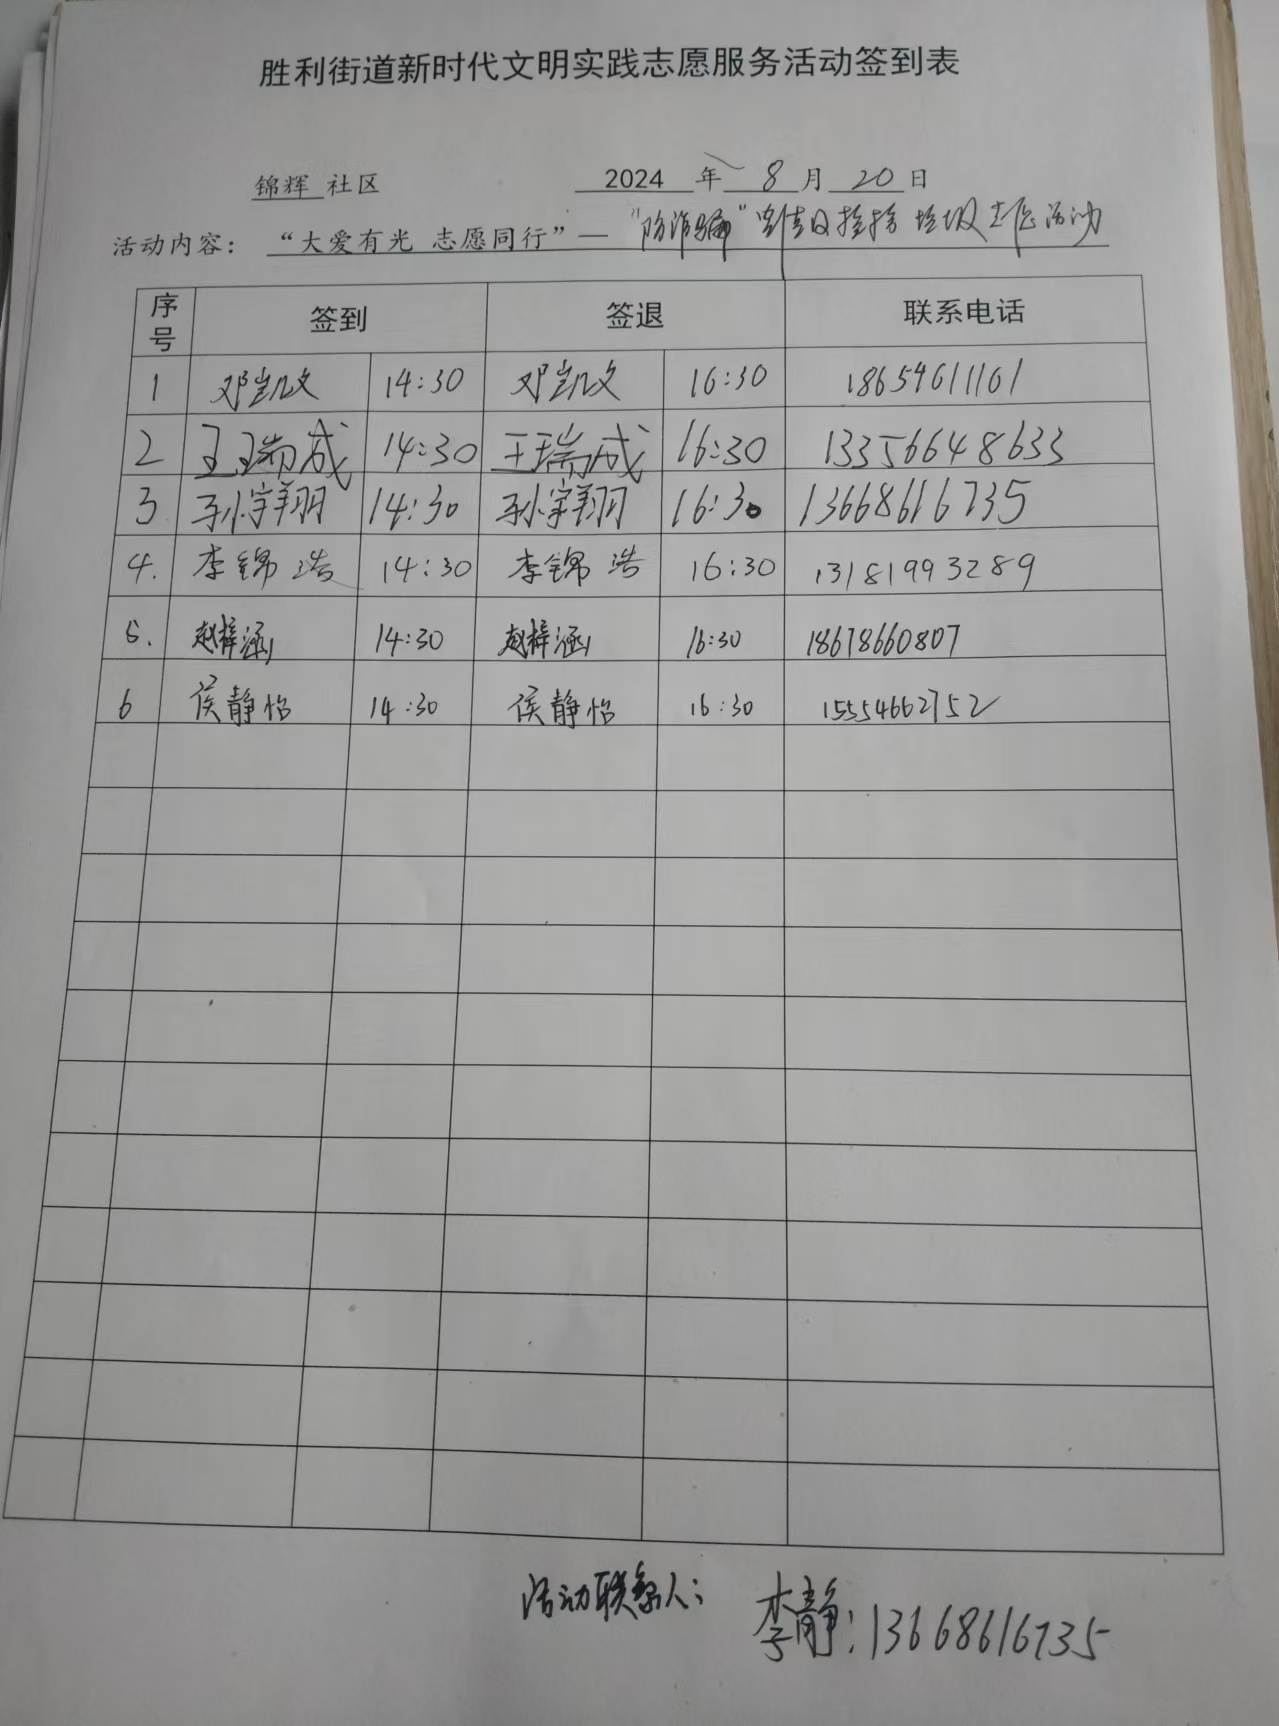 胜利街道新时代文明实践志愿服务活动签到表
锦辉 社区 2024 年 8 月 20 日
活动内容： “大爱有光 志愿同行”— “防诈骗” 垃圾 志愿活动
序号 签到 签退 联系电话
1 邓凯文 14:30 邓凯文 16:30 18654611161
2 王瑞成 14:30 王瑞成 16:30 13356648633
3 孙宇翔 14:30 孙宇翔 16:30 13668616735
4. 李锦浩 14:30 李锦浩 16:30 13181993289
5. 赵梓涵 14:30 赵梓涵 16:30 18678660807
6 侯静怡 14:30 侯静怡 16:30 15554662752
活动联系人： 李静：13668616735